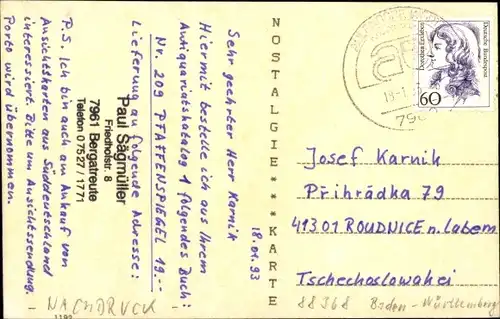 18.01.93
Sehr geehrter Herr Karnik
Hiermit bestelle ich aus Ihrem
Antiquariatskatalog 1 folgendes Buch:
Nr. 209 PFAFFENSPIEGEL 19.--
Lieferung an folgende Adresse:
Paul Sägmüller
Friedhofstr. 8
7961 Bergatreute
Telefon 0 75 27 / 17 71
P.S. Ich bin auch am Ankauf von
Ansichtskarten aus Süddeutschland
interessiert. Bitte um Ansichtssendung.
Porto wird übernommen.
- NACHDRUCK -
1192
NOSTALGIE * * * KARTE
Deutsche Bundespost
Dorothea Erxleben
60
Josef Karnik
Přihrádka 79
41301 ROUDNICE n. Labem
Tschechoslowakei
88368 Baden-Württemberg